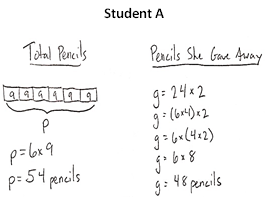 Student A
Total Pencils
9 9 9 9 9 9
P
p=6x9
p=54 pencils
Pencils She Gave Away
g=24x2
g=(6x4)x2
g=6x(4x2)
g=6x8
g=48 pencils